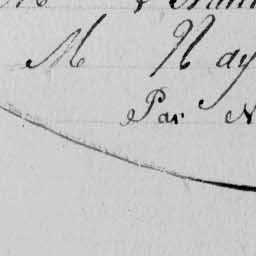 M Nay
Par N